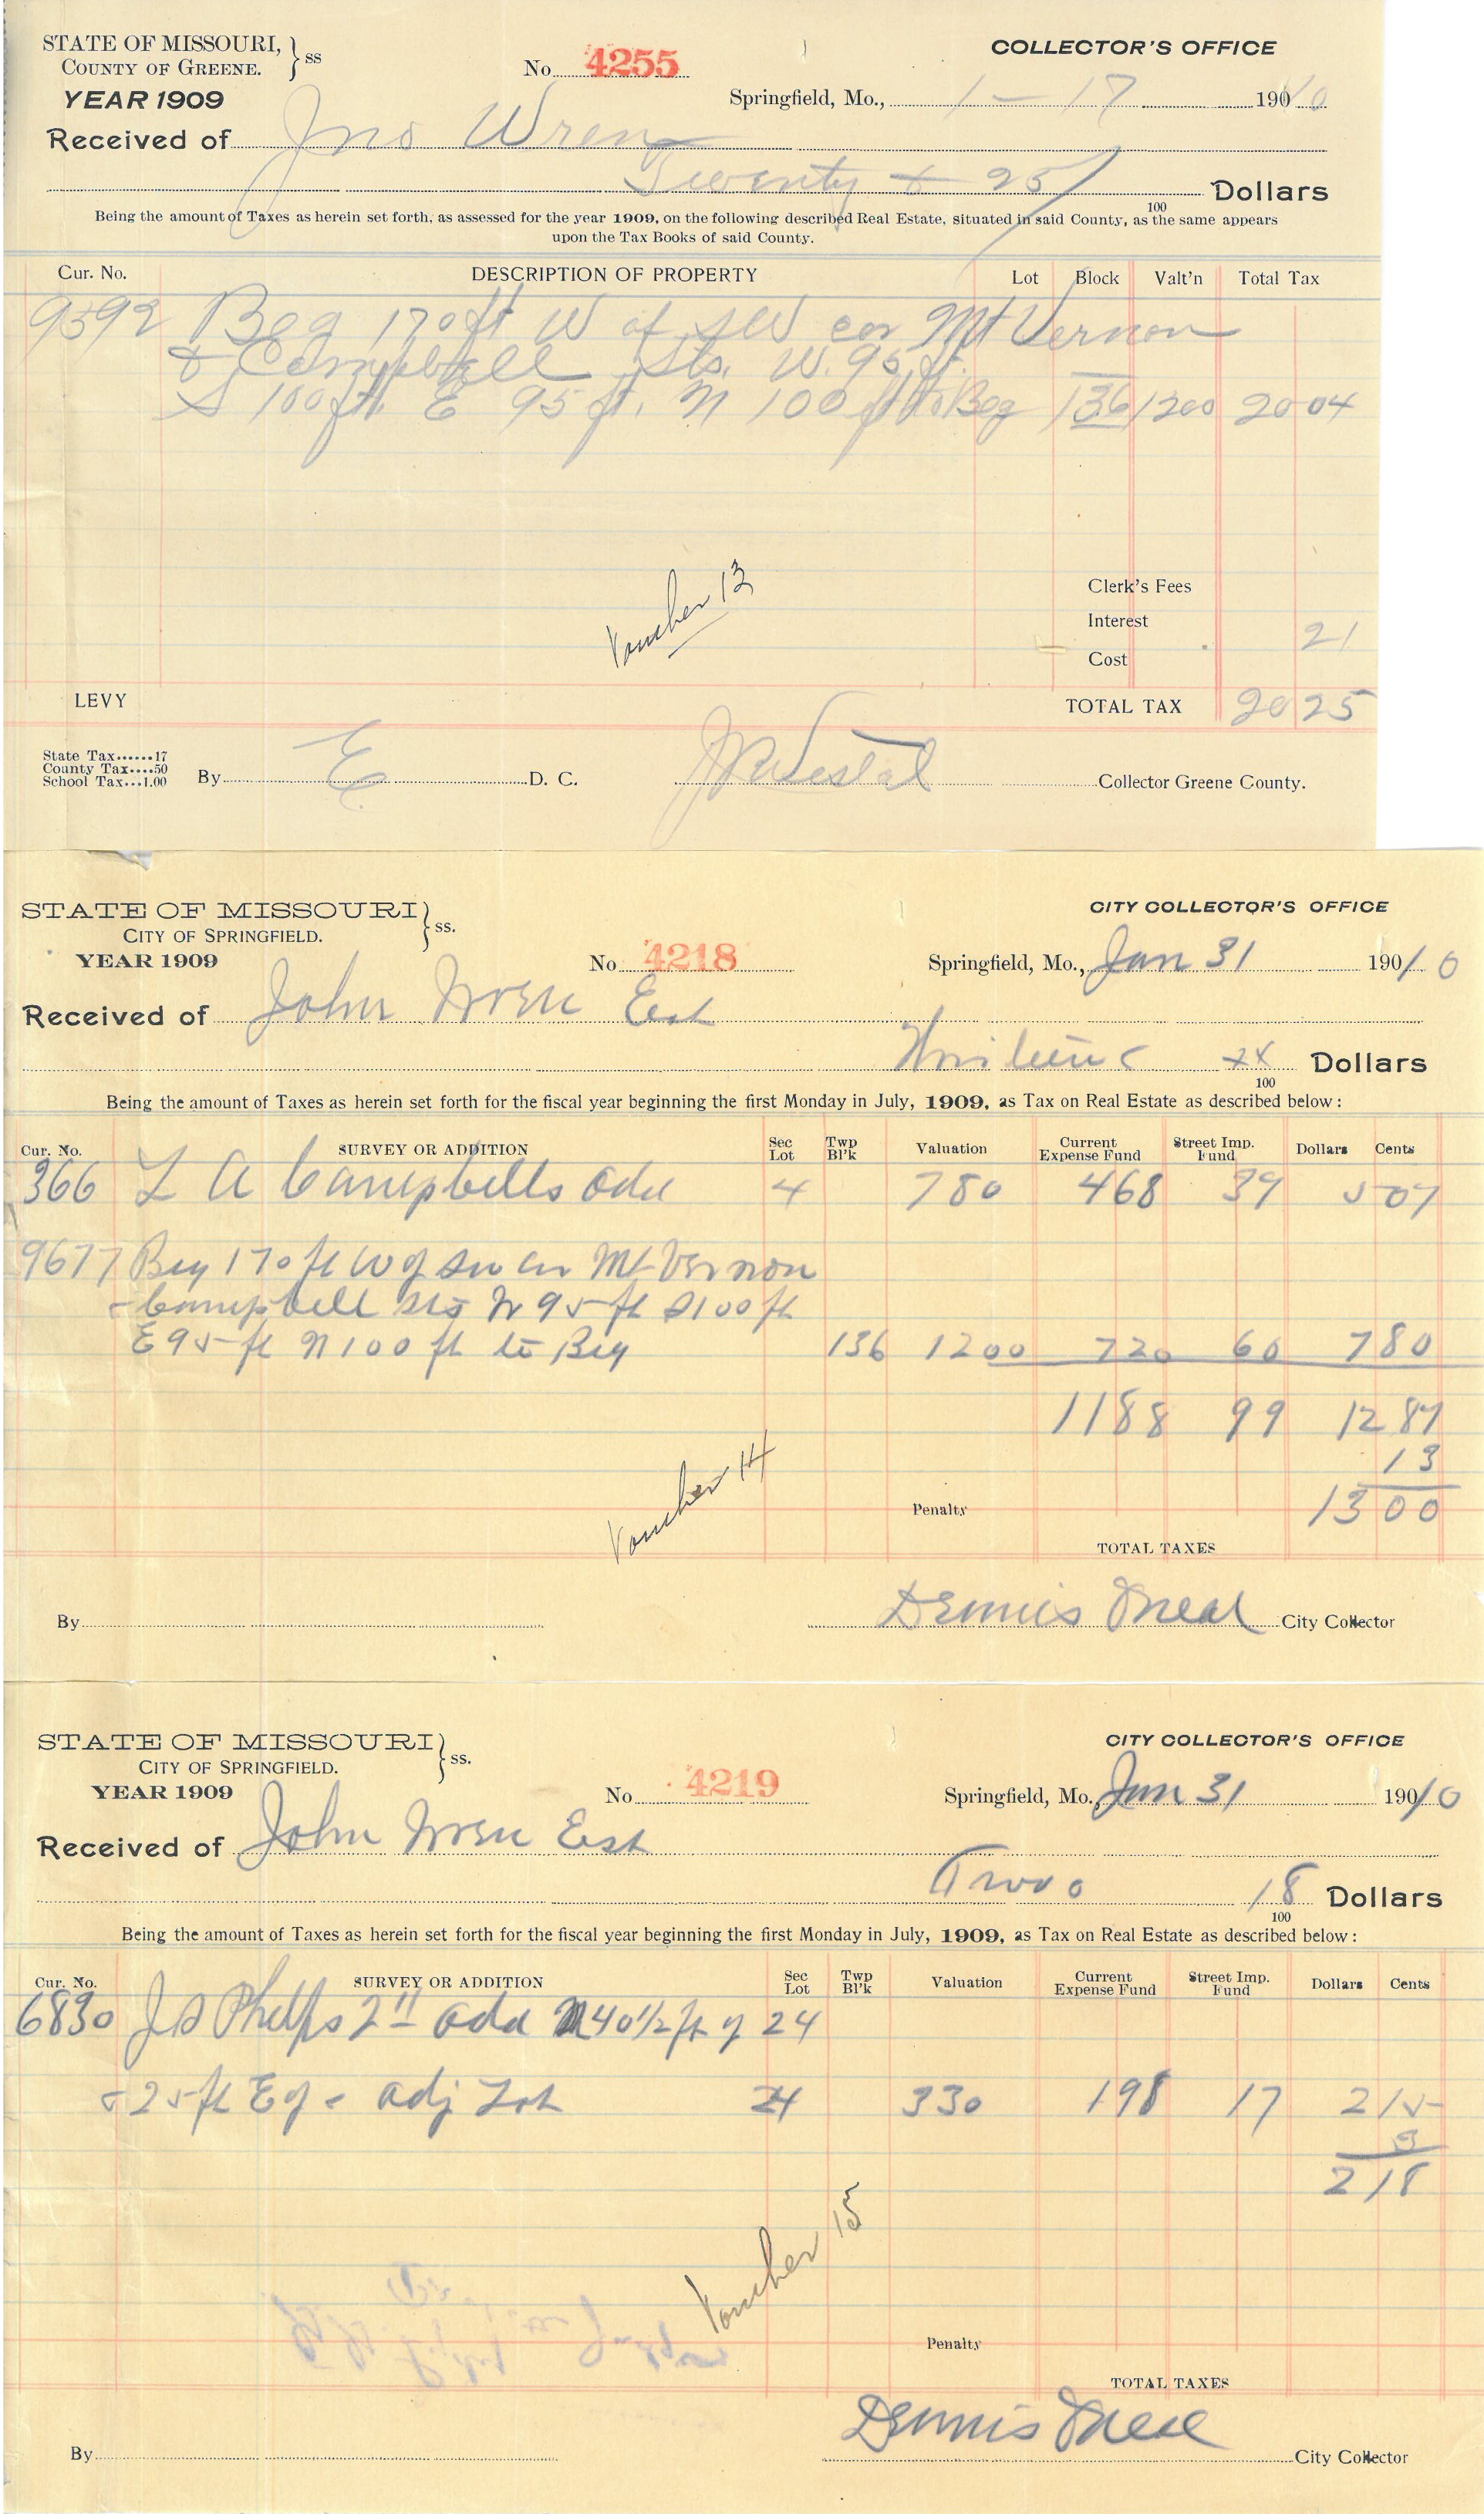 STATE OF MISSOURI, } ss
COUNTY OF GREENE.
YEAR 1909
No. 4255
COLLECTOR'S OFFICE
Springfield, Mo., 1-17 1910
Received of Jno Wren
Twenty & 25/100 Dollars
Being the amount of Taxes as herein set forth, as assessed for the year 1909, on the following described Real Estate, situated in said County, as the same appears
upon the Tax Books of said County.
Cur. No. DESCRIPTION OF PROPERTY Lot Block Valt'n Total Tax
9592 Beg 170 ft W of SW cor Mt Vernon
& Campbell Sts. W. 95 ft.
S 100 ft. E 95 ft. N 100 ft to Beg 136 1200 20 04
Voucher 13
Clerk's Fees
Interest 21
Cost
LEVY TOTAL TAX 20 25
State Tax......17
County Tax....50
School Tax...1.00
By E D. C. Collector Greene County.
STATE OF MISSOURI } ss.
CITY OF SPRINGFIELD.
YEAR 1909
No. 4218
CITY COLLECTOR'S OFFICE
Springfield, Mo., Jan 31 1910
Received of John Wren Est
Thirteen xx/100 Dollars
Being the amount of Taxes as herein set forth for the fiscal year beginning the first Monday in July, 1909, as Tax on Real Estate as described below:
Cur. No. SURVEY OR ADDITION Sec Lot Twp Bl'k Valuation Current Expense Fund Street Imp. Fund Dollars Cents
366 L A Campbells Add 4 780 468 39 5 07
9677 Beg 170 ft W of SW Cor Mt Vernon
& Campbell Sts W 95 ft S 100 ft
E 95 ft N 100 ft to Beg 136 1200 720 60 7 80
1188 99 12 87
13
Voucher 14
Penalty 13 00
TOTAL TAXES
By Dennis Oneal City Collector
STATE OF MISSOURI } ss.
CITY OF SPRINGFIELD.
YEAR 1909
No. 4219
CITY COLLECTOR'S OFFICE
Springfield, Mo., Jan 31 1910
Received of John Wren Est
Two 18/100 Dollars
Being the amount of Taxes as herein set forth for the fiscal year beginning the first Monday in July, 1909, as Tax on Real Estate as described below:
Cur. No. SURVEY OR ADDITION Sec Lot Twp Bl'k Valuation Current Expense Fund Street Imp. Fund Dollars Cents
6830 J S Phelps 2" Add N 40 1/2 ft of 24
& 25 ft E of & adj Lot 24 330 198 17 2 15
3
2 18
Voucher 15
Penalty
TOTAL TAXES
By Dennis Oneal City Collector